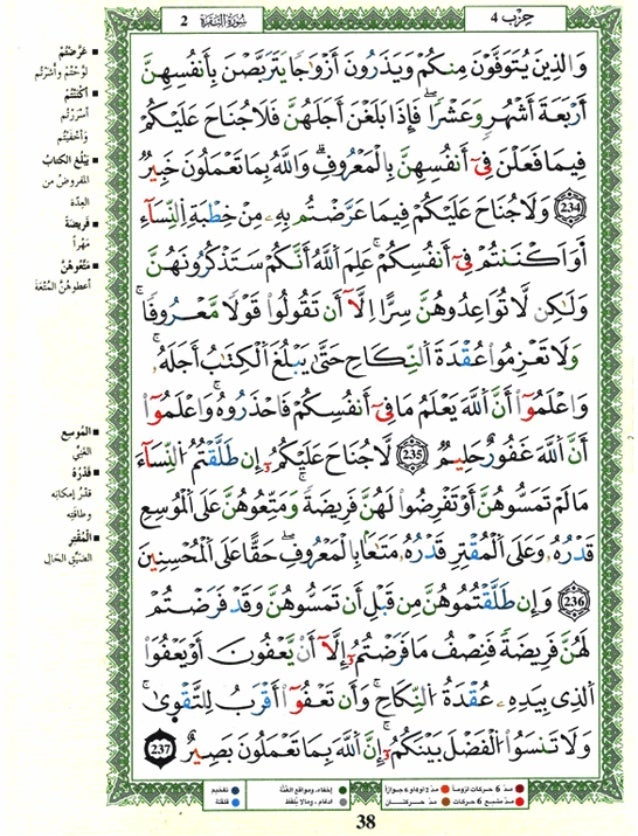 حِزْب 4
سُورَةُ البَقَرَة 2
وَالذِينَ يُتَوَفَّوْنَ مِنكُمْ وَيَذَرُونَ أَزْوَٰجا يَتَرَبَّصْنَ بِأَنفُسِهِنَّ
أَرْبَعَةَ أَشْهُرٍ وَعَشْراۖ فَإِذَا بَلَغْنَ أَجَلَهُنَّ فَلَا جُنَاحَ عَلَيْكُمْ
فِيمَا فَعَلْنَ فِےٓ أَنفُسِهِنَّ بِالْمَعْرُوفِۗ وَاللَّهُ بِمَا تَعْمَلُونَ خَبِيرٌ
234 وَلَا جُنَاحَ عَلَيْكُمْ فِيمَا عَرَّضْتُم بِهِۦ مِنْ خِطْبَةِ اِ۬لنِّسَآءِ
اَوَ اَكْنَنتُمْ فِےٓ أَنفُسِكُمْۚ عَلِمَ اَللَّهُ أَنَّكُمْ سَتَذْكُرُونَهُنَّ
وَلَٰكِن لَّا تُوَاعِدُوهُنَّ سِرّاً اِلَّآ أَن تَقُولُواْ قَوْلا مَّعْرُوفاۚ
وَلَا تَعْزِمُواْ عُقْدَةَ اَ۬لنِّكَاحِ حَتَّىٰ يَبْلُغَ اَ۬لْكِتَٰبُ أَجَلَهُۥۚ
وَاعْلَمُوٓاْ أَنَّ اَللَّهَ يَعْلَمُ مَا فِےٓ أَنفُسِكُمْ فَاحْذَرُوهُۚ وَاعْلَمُوٓاْ
أَنَّ اَللَّهَ غَفُورٌ حَلِيمٌ 235 لَّا جُنَاحَ عَلَيْكُمُۥٓ إِن طَلَّقْتُمُ اُ۬لنِّسَآءَ
مَا لَمْ تَمَسُّوهُنَّ أَوْ تَفْرِضُواْ لَهُنَّ فَرِيضَةۚ وَمَتِّعُوهُنَّ عَلَى اَ۬لْمُوسِعِ
قَدْرُهُۥ وَعَلَى اَ۬لْمُقْتِرِ قَدْرُهُۥ مَتَٰعاَۢ بِالْمَعْرُوفِۖ حَقّاً عَلَى اَ۬لْمُحْسِنِينَ
236 وَإِن طَلَّقْتُمُوهُنَّ مِن قَبْلِ أَن تَمَسُّوهُنَّ وَقَدْ فَرَضْتُمْ
لَهُنَّ فَرِيضَةً فَنِصْفُ مَا فَرَضْتُمُۥٓ إِلَّآ أَنْ يَّعْفُونَ أَوْ يَعْفُوَاْ
اَ۬لذِي بِيَدِهِۦ عُقْدَةُ اُ۬لنِّكَاحِۚ وَأَن تَعْفُوٓاْ أَقْرَبُ لِلتَّقْوٜىٰۚ
وَلَا تَنسَوُاْ اُ۬لْفَضْلَ بَيْنَكُمُۥٓۚ إِنَّ اَللَّهَ بِمَا تَعْمَلُونَ بَصِيرٌ 237
■ عَرَّضْتُمْ
لَوَّحْتُمْ وأَشَرْتُم
■ أكْنَنْتُمْ
أسْرَرْتُم
وأخْفَيْتُم
■ يَبْلُغ الكتابُ
المَفروضُ من
العِدَّة
■ فَرِيضَةً
مَهْراً
■ مَتِّعُوهُنَّ
أعطوهُنَّ المُتْعَةَ
■ المُوسِع
الغَنِيُّ
■ قَدْرُهُ
قَدْرُ إمكانِه
وطاقَتِه
■ المُقْتِر
الضَّيِّق الحَال
مدّ 6 حركات لزوماً
مدّ 2 أو 4 أو 6 جوازاً
إخفاء، ومواقع الغُنَّة
تفخيم
مدّ مشبع 6 حركات
مدّ حركتان
ادغام، ومالا يُلفَظ
قلقلة
38